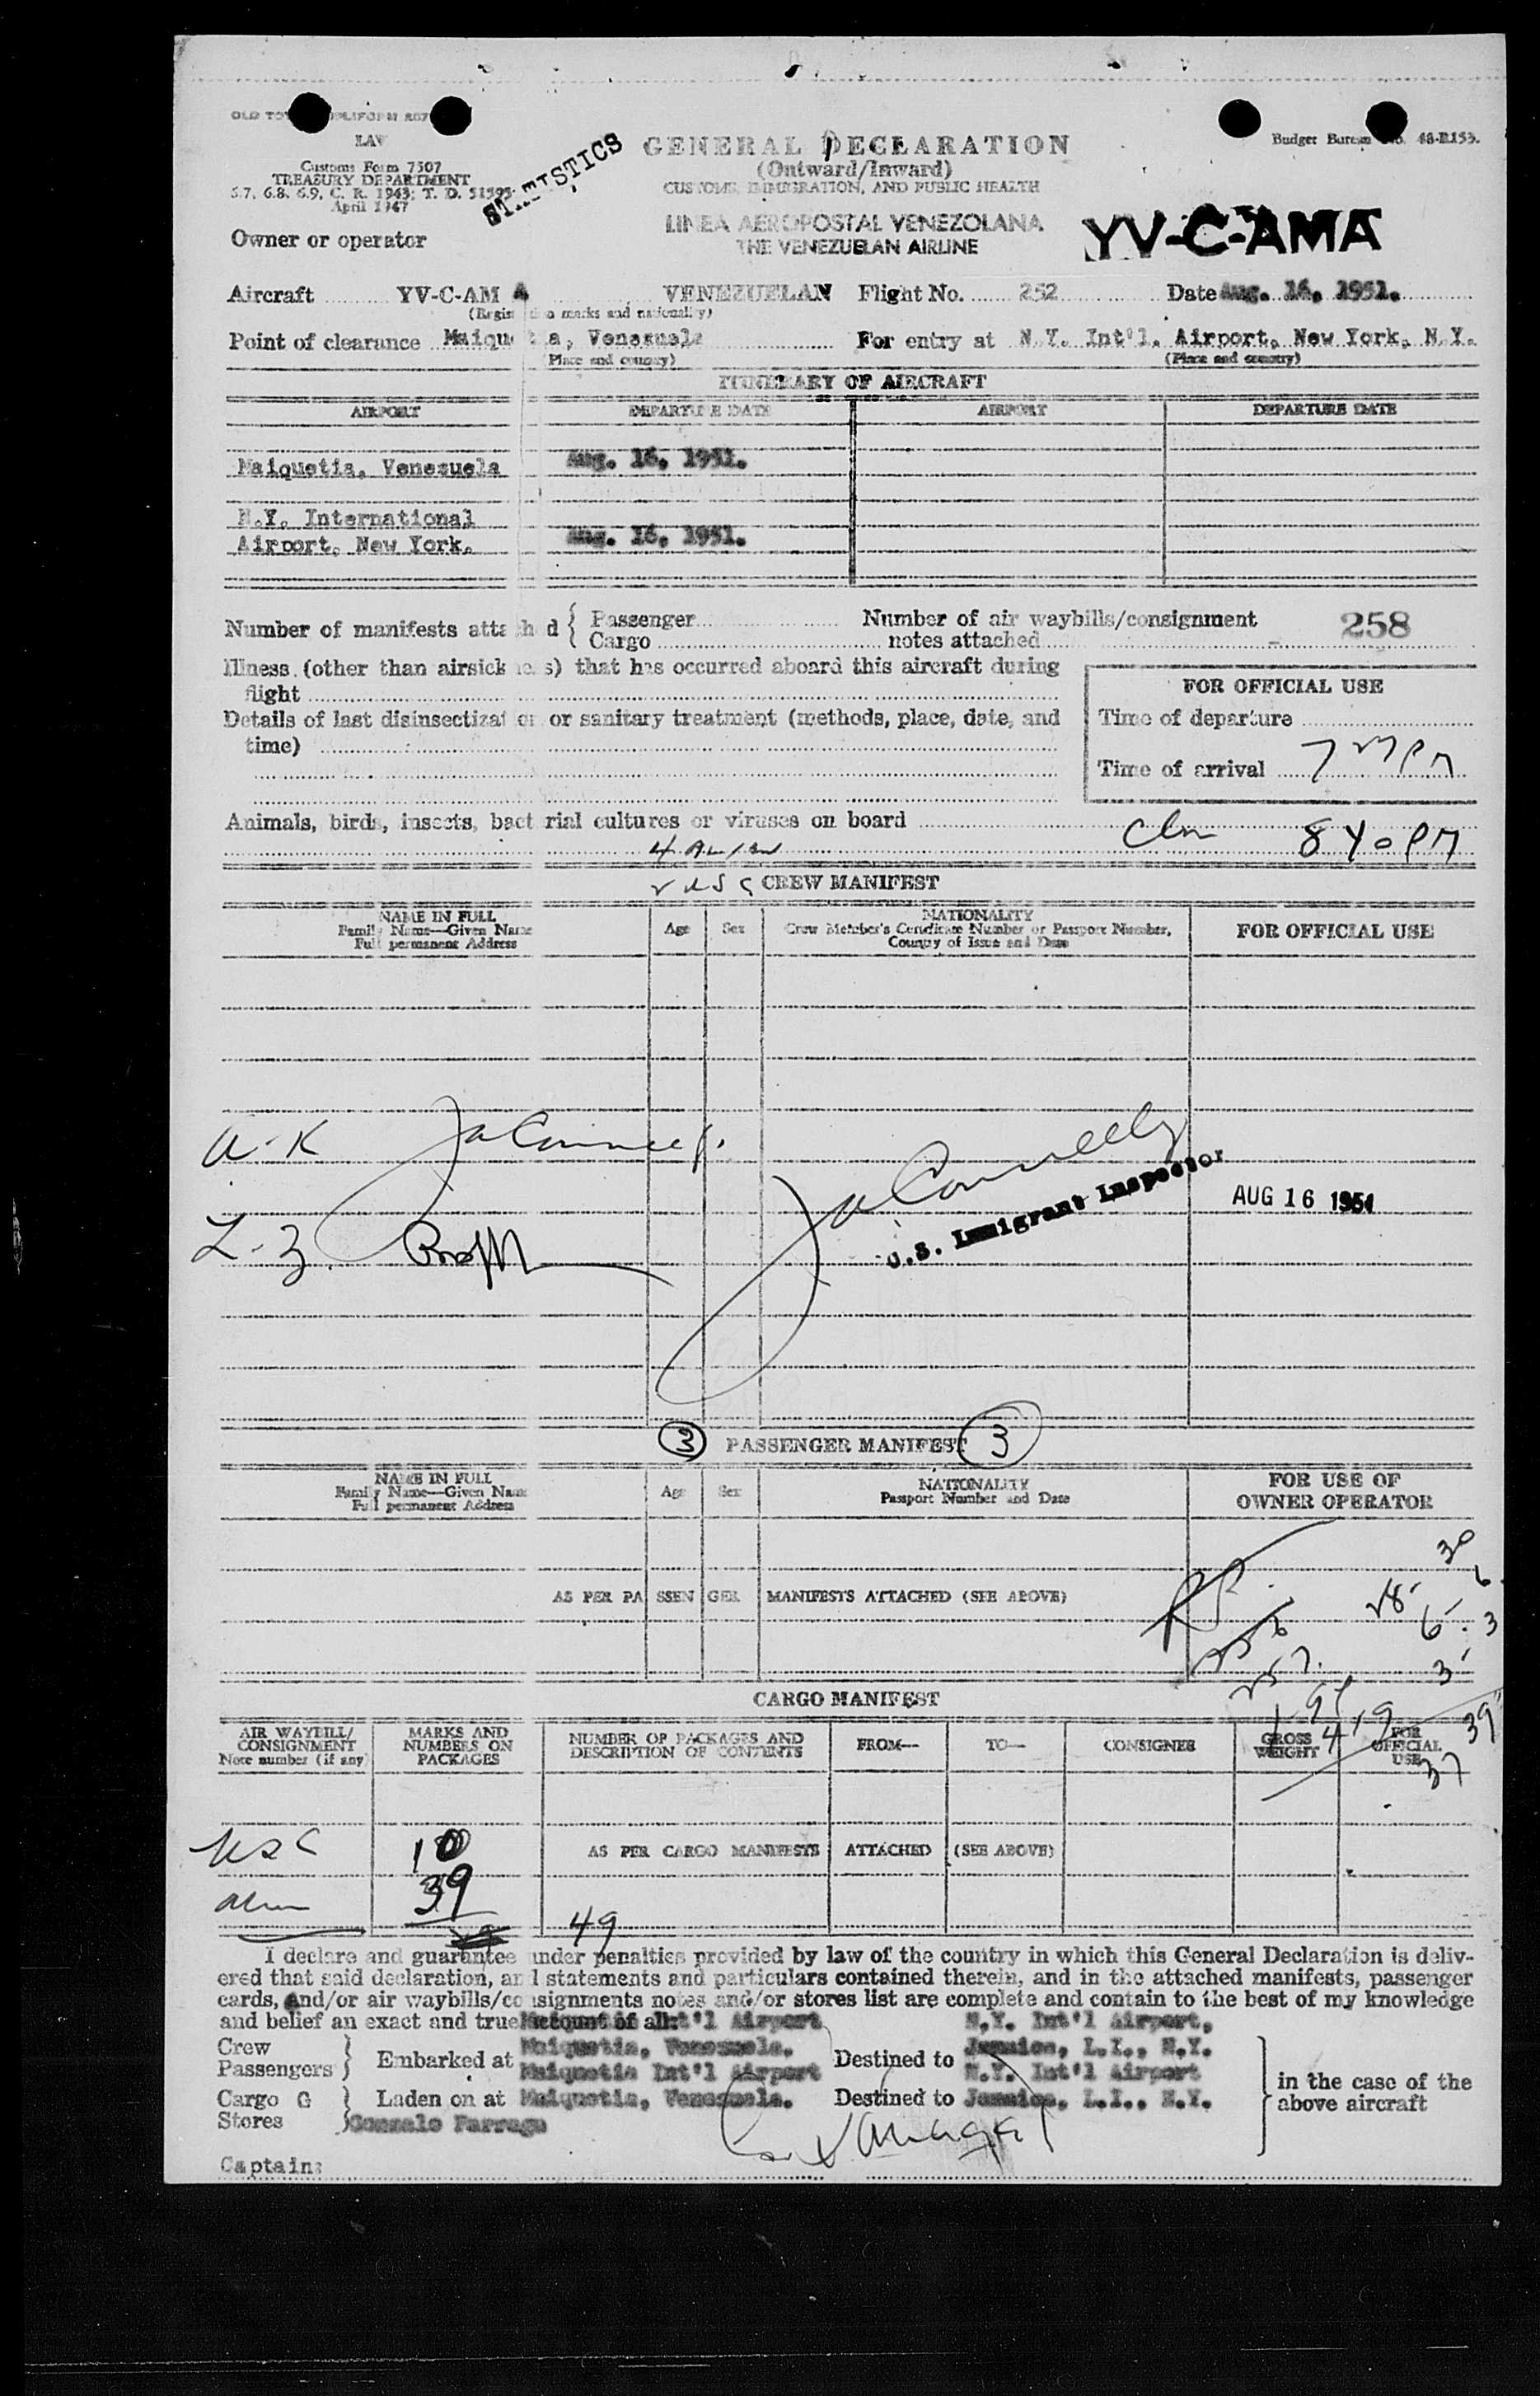 LAV
Customs Form 7507
TREASURY DEPARTMENT
April 1947
STATISTICS
GENERAL DECLARATION
(Outward/Inward)
CUSTOMS, IMMIGRATION, AND PUBLIC HEALTH
LINEA AEROPOSTAL VENEZOLANA
THE VENEZUELAN AIRLINE
Budget Bureau No. 48-R153.
YV-C-AMA
Owner or operator
Aircraft YV-C-AM A VENEZUELAN Flight No. 252 Date Aug. 16, 1951.
(Registration marks and nationality)
Point of clearance Maiquetia, Venezuela For entry at N.Y. Int'l. Airport, New York, N.Y.
(Place and country) (Place and country)
ITINERARY OF AIRCRAFT
AIRPORT DEPARTURE DATE AIRPORT DEPARTURE DATE
Maiquetia, Venezuela Aug. 16, 1951.
N.Y. International
Airport, New York. Aug. 16, 1951.
Number of manifests attached { Passenger Number of air waybills/consignment 258
Cargo notes attached
Illness (other than airsickness) that has occurred aboard this aircraft during
flight
FOR OFFICIAL USE
Details of last disinsectization or sanitary treatment (methods, place, date, and
time)
Time of departure
Time of arrival 7 PM
Animals, birds, insects, bacterial cultures or viruses on board
8 40 PM
4 Alien
CREW MANIFEST
NAME IN FULL Age Sex NATIONALITY FOR OFFICIAL USE
Family Name—Given Name Crew Member's Certificate Number or Passport Number,
Full permanent Address Country of Issue and Date
U.S. Immigrant Inspector
AUG 16 1951
3 PASSENGER MANIFEST 3
NAME IN FULL Age Sex NATIONALITY FOR USE OF
Family Name—Given Name Passport Number and Date OWNER OPERATOR
Full permanent Address
30
AS PER PASSENGER MANIFESTS ATTACHED (SEE ABOVE)
CARGO MANIFEST
AIR WAYBILL/ MARKS AND NUMBER OF PACKAGES AND FROM— TO— CONSIGNEE GROSS FOR
CONSIGNMENT NUMBERS ON DESCRIPTION OF CONTENTS WEIGHT OFFICIAL
Note number (if any) PACKAGES USE
39
37
USC 10 AS PER CARGO MANIFESTS ATTACHED (SEE ABOVE)
39
49
I declare and guarantee under penalties provided by law of the country in which this General Declaration is deliv-
ered that said declaration, and statements and particulars contained therein, and in the attached manifests, passenger
cards, and/or air waybills/consignments notes and/or stores list are complete and contain to the best of my knowledge
and belief an exact and true account of all: Int'l Airport N.Y. Int'l Airport,
Crew } Embarked at Maiquetia, Venezuela. Destined to Jamaica, L.I., N.Y.
Passengers Maiquetia Int'l Airport N.Y. Int'l Airport
Cargo G } Laden on at Maiquetia, Venezuela. Destined to Jamaica, L.I., N.Y.
Stores Gonzalo Farrugo
in the case of the
above aircraft
Captain: